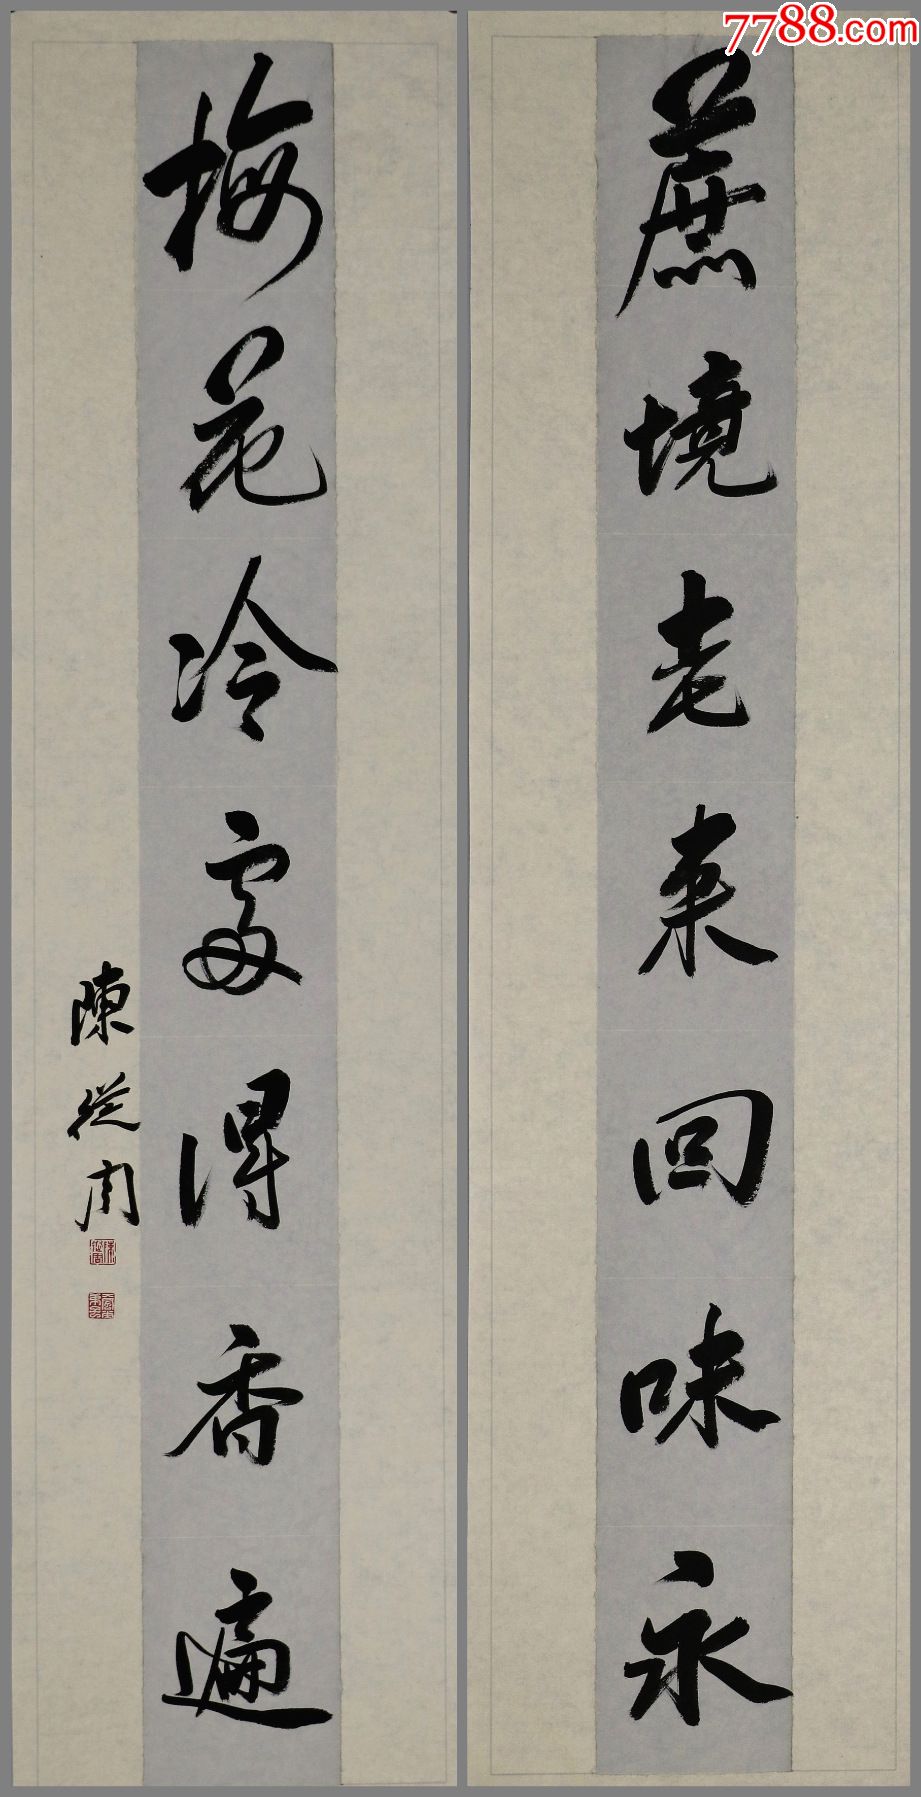 7788.com
蔗境老来回味永
梅花冷處得香遍
陳從周